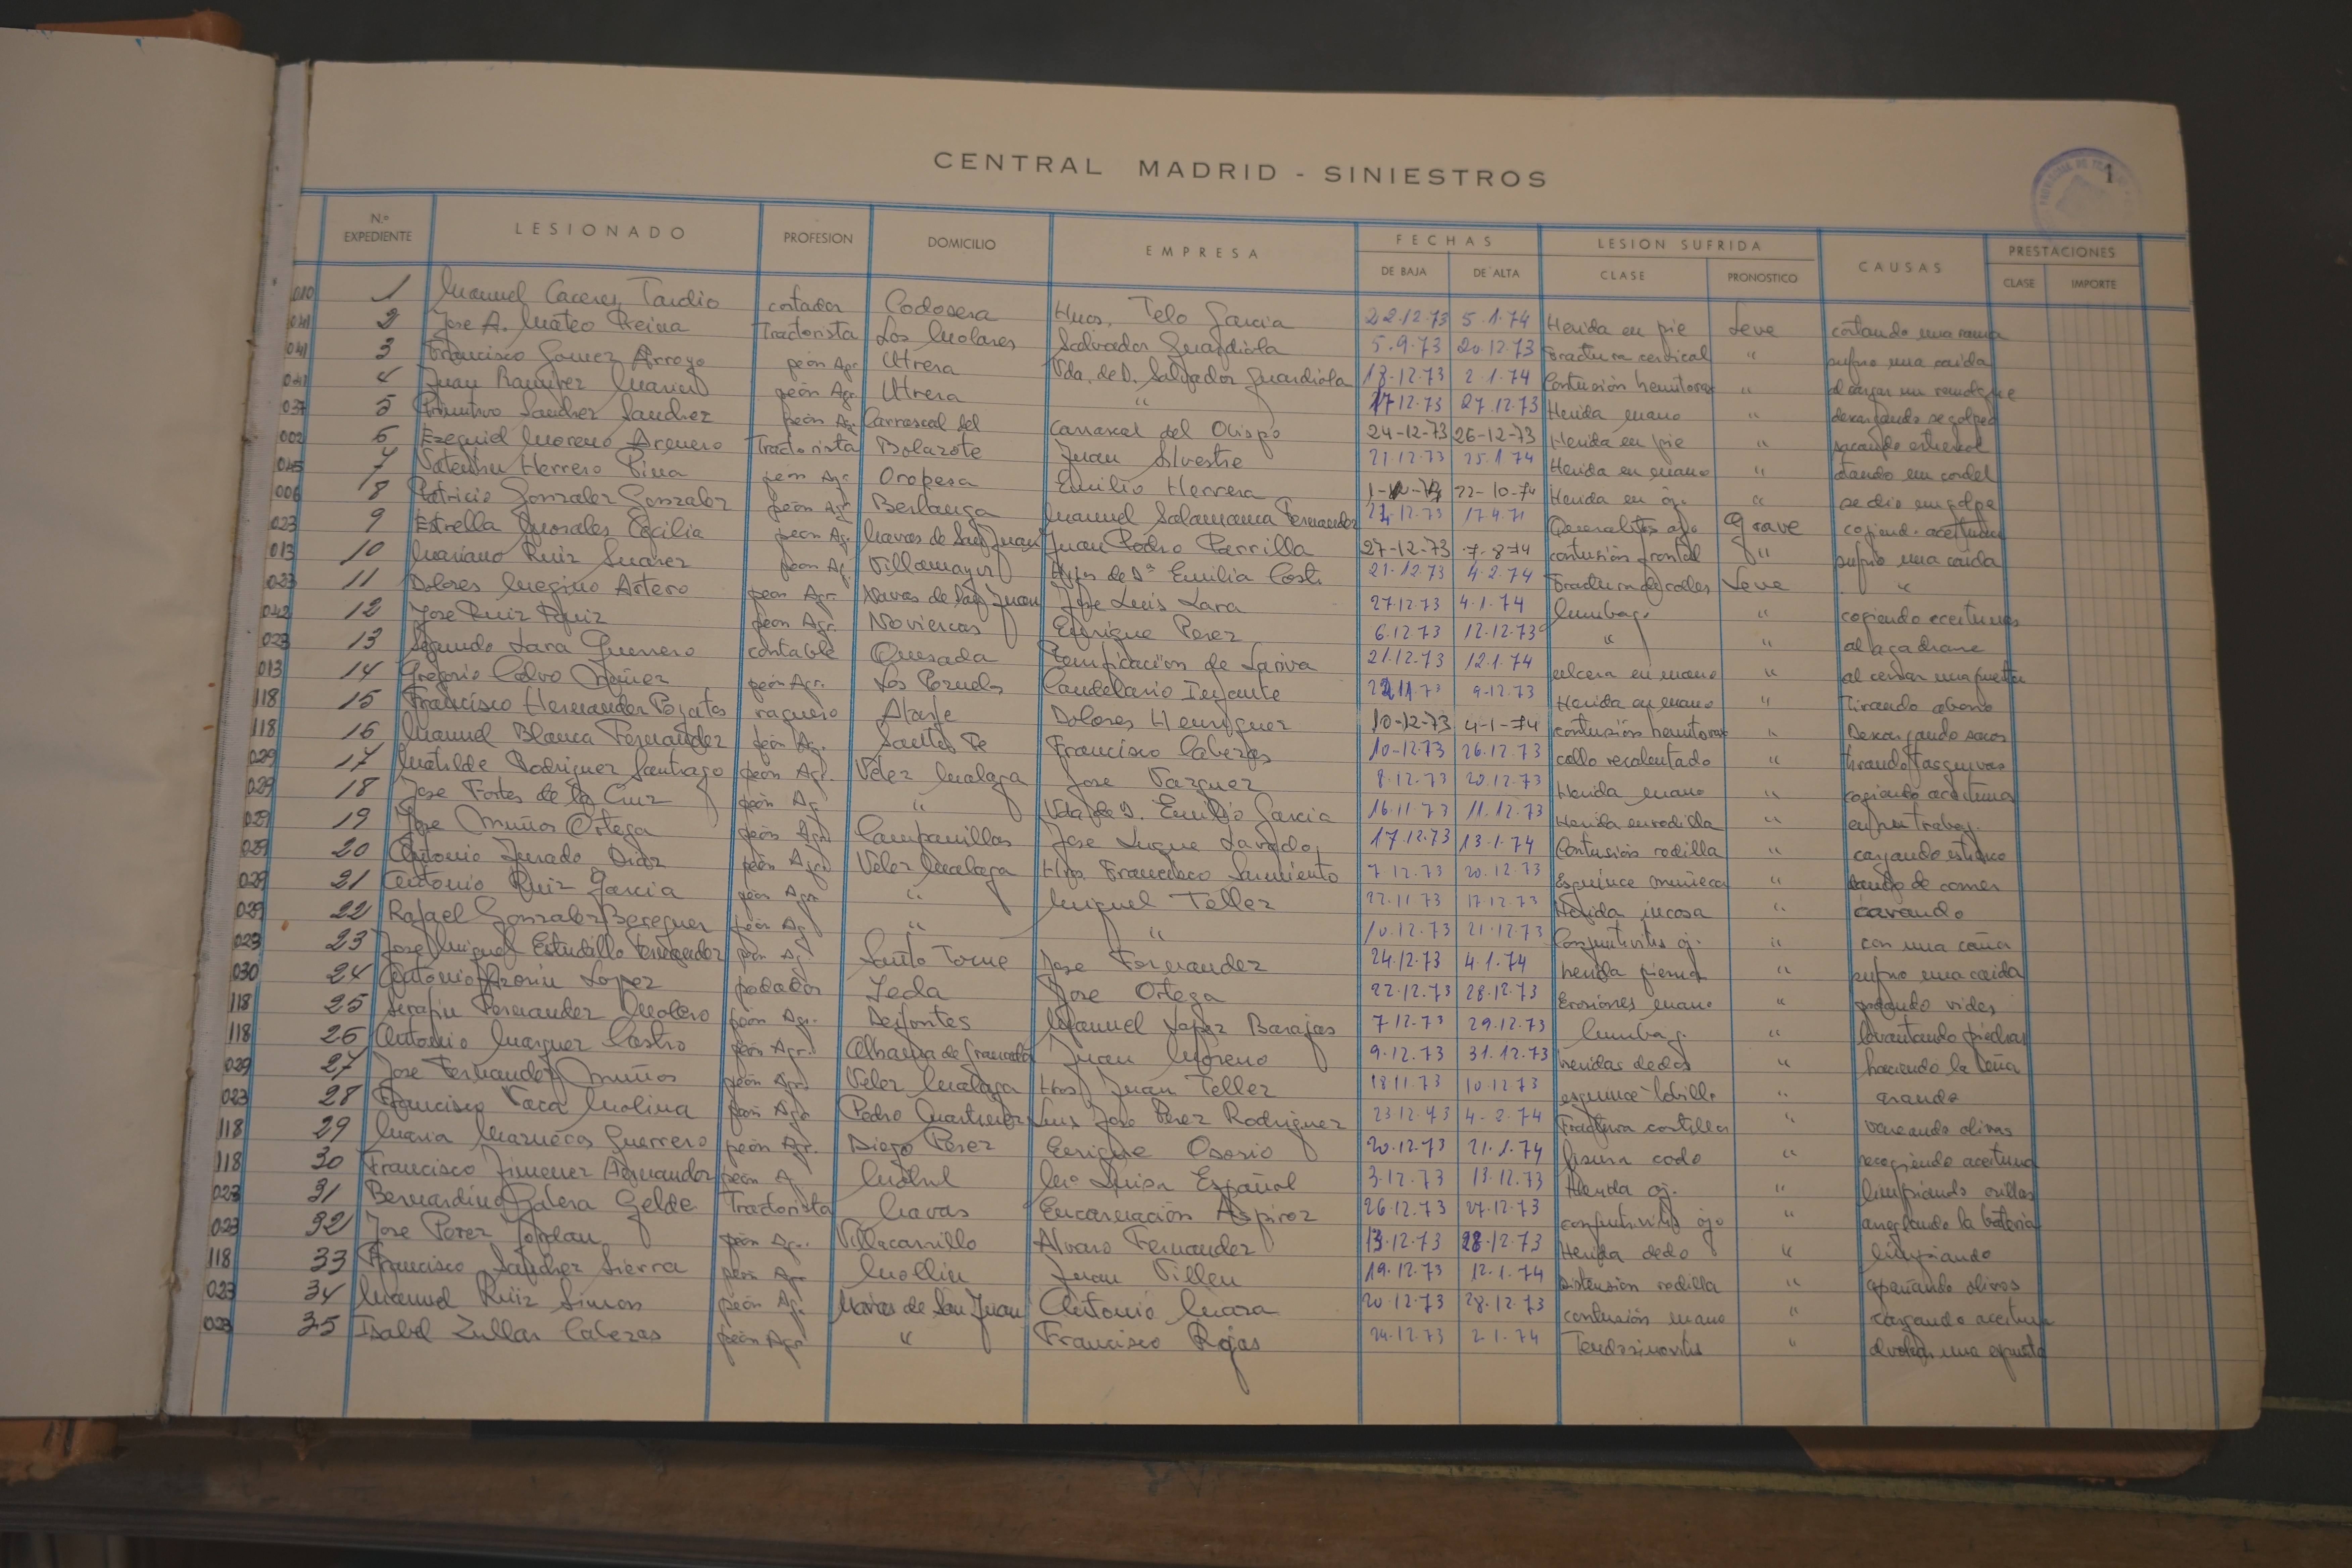 CENTRAL MADRID - SINIESTROS
1
N.º EXPEDIENTE LESIONADO PROFESION DOMICILIO EMPRESA FECHAS LESION SUFRIDA CAUSAS PRESTACIONES
DE BAJA DE ALTA CLASE PRONOSTICO CLASE IMPORTE
010 1 Manuel Caceres Tardio cortador Codosera Hnos. Telo Garcia 22.12.73 5.1.74 Herida en pie Leve cortando una rama
041 2 Jose A. Mateo Reina Tractorista Los Molares Salvador Guardiola 5.9.73 20.12.73 Fractura cervical " sufrio una caida
041 3 Francisco Gomez Arroyo peón Agr. Utrera Vda. de D. Salvador Guardiola 18-12-73 2.1.74 Contusión hemitorax " al cargar un remolque
041 4 Juan Ramirez Marin peón Agr. Utrera " 17.12.73 27.12.73 Herida mano " descargando se golpeo
037 5 Primitivo Sanchez Sanchez peón Ag. Carrascal del Carrascal del Obispo 24-12-73 26-12-73 Herida en pie " sacando estiercol
002 6 Ezequiel Moreno Arenero Tractorista Balazote Juan Silvestre 21.12.73 25.1.74 Herida en mano " atando un cordel
045 7 Herrero Pina peón Agr. Oropesa Emilio Herrera 22-10-74 Herida en oj. " se dio un golpe
006 8 Patricio Gonzalez Gonzalez peón Agr. Berlanga Manuel Salamanca Fernandez 21.12.73 17.4.71 ojo Grave cogiend. aceitunas
023 9 Estrella Morales Cecilia peón Agr. Navas de San Juan Juan Pedro Parrilla 27-12-73 7-8-74 contusión frontal " sufrio una caida
013 10 Mariano Ruiz Suarez peón Ag. Villamayor de Dª Emilia Cost. 21.12.73 4.2.74 Fractura de codes Leve "
023 11 Dolores Megino Artero peón Agr. Navas de San Juan Jose Luis Lara 27.12.73 4.1.74 lumbag. " cogiendo aceitunas
042 12 Jose Ruiz Ruiz peón Agr. Noviercas Enrique Perez 6.12.73 12.12.73 " " al agacharse
023 13 Segundo Lara Guerrero contable Quesada Panificacion de Lariva 21.12.73 12.1.74 ulcera en mano " al cerrar una puerta
013 14 Gregorio Calvo Muñoz peón Agr. Los Pozuelos Candelario Infante 22.11.73 9-12.73 Herida en mano " Tirando abono
118 15 Francisco Hernandez Pozatos vaquero Atarfe Dolores Henriquez 10-12-73 4-1-74 contusión hemitorax " Descargando sacos
118 16 Manuel Blanca Fernandez peón Ag. Santa Fe Francisco Cabezas 10-12.73 26.12.73 callo recalentado "
029 17 Matilde Rodriguez Santiago peón Agr. Velez Malaga Jose Vazquez 8.12.73 20.12.73 Herida mano " cogiendo aceituna
029 18 Jose Fortes de la Cruz peón Ag. " Vda de D. Emilio Garcia 16.11.73 11.12.73 Herida en rodilla " en su trabaj.
029 19 Jose Muños Ortega peón Agr. Campanillas Jose Luque Lavado 17.12.73 13.1.74 Contusión rodilla " cargando
029 20 Antonio Jurado Diaz peón Agr. Velez Malaga Hros. Francisco Sarmiento 7.12.73 20.12.73 Esguince muñeca " dando de comer
029 21 Antonio Ruiz Garcia peón Agr. " Miguel Tellez 22.11.73 17.12.73 Herida " cavando
029 22 Rafael Gonzalez Bereguer peón Ag. " " 10.12.73 21.12.73 Conjuntivitis oj. " con una caña
023 23 Jose Miguel Estudillo Fernandez peón Ag. Santo Tome Jose Fernandez 24.12.73 4.1.74 herida pierna " sufrio una caida
030 24 Antonio Lopez podador Yecla Jose Ortega 22.12.73 28.12.73 Erosiones mano " podando vides
118 25 Serafin Fernandez Molero peón Agr. Deifontes Manuel Lopez Barajas 7.12.73 29.12.73 lumbag. " levantando piedras
118 26 Antonio Marquez Castro peón Agr. Alhama de Granada Juan Moreno 9.12.73 31.12.73 heridas dedos " haciendo la leña
029 27 Jose Fernandez Muños peón Agr. Velez Malaga Hros Juan Tellez 18.11.73 10.12.73 esguince tobillo " arando
023 28 Francisco Vaca Molina peón Ago Pedro Martinez Luis Jose Perez Rodriguez 23.12.73 4-2.74 Fractura costillas " vareando olivas
118 29 Maria Guerrero peón Agr. Diego Perez Enrique Osorio 20.12.73 21.1.74 fisura codo " recogiendo aceituna
118 30 Francisco Jimenez Fernandez peón A. Mª Luisa Español 3.12.73 13.12.73 Herida oj. " limpiando orillas
023 31 Bernardino Galera Gelde Tractorista Navas Encarnación Aspiroz 26.12.73 27.12.73 conjuntivitis ojo " arreglando la bateria
023 32 Jose Perez Jordan peón Agr. Villacarrillo Alvaro Fernandez 13.12.73 28.12.73 Herida dedo " limpiando
118 33 Francisco Sanchez Sierra peón Agr. Moclin Juan Villen 19.12.73 12.1.74 Distension rodilla " apañando olivos
023 34 Manuel Ruiz Simon peón Ag. Navas de San Juan Antonio 20.12.73 28.12.73 contusión mano " cargando aceituna
023 35 Isabel Zullar Cabezas peón Agr " Francisco Rojas 24.12.73 2-1.74 Tendosinovitis " una espuerta